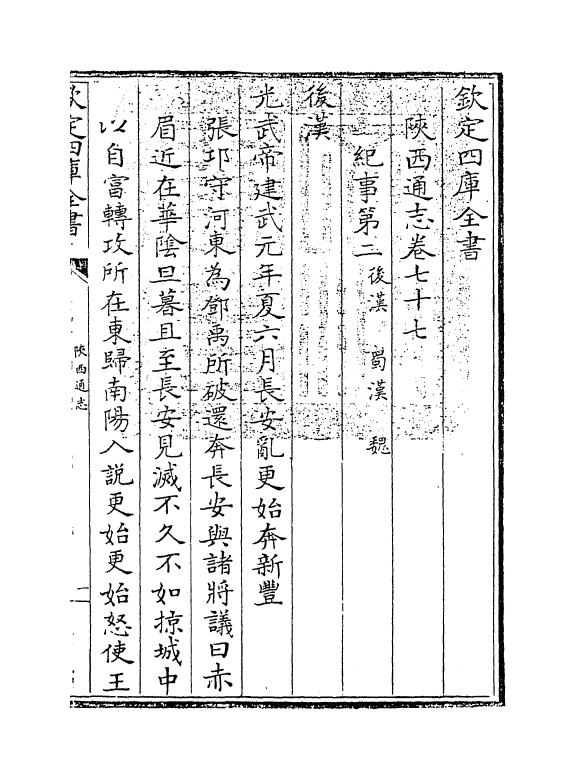 欽定四庫全書
陜西通志卷七十七
紀事第二後漢 蜀漢 魏
後漢
光武帝建武元年夏六月長安亂更始奔新豐
張卭守河東為鄧禹所破還奔長安與諸將議曰赤
眉近在華陰旦暮且至長安見滅不久不如掠城中
以自富轉攻所在東歸南陽入説更始更始怒使王
欽定四庫全書
陜西通志
一